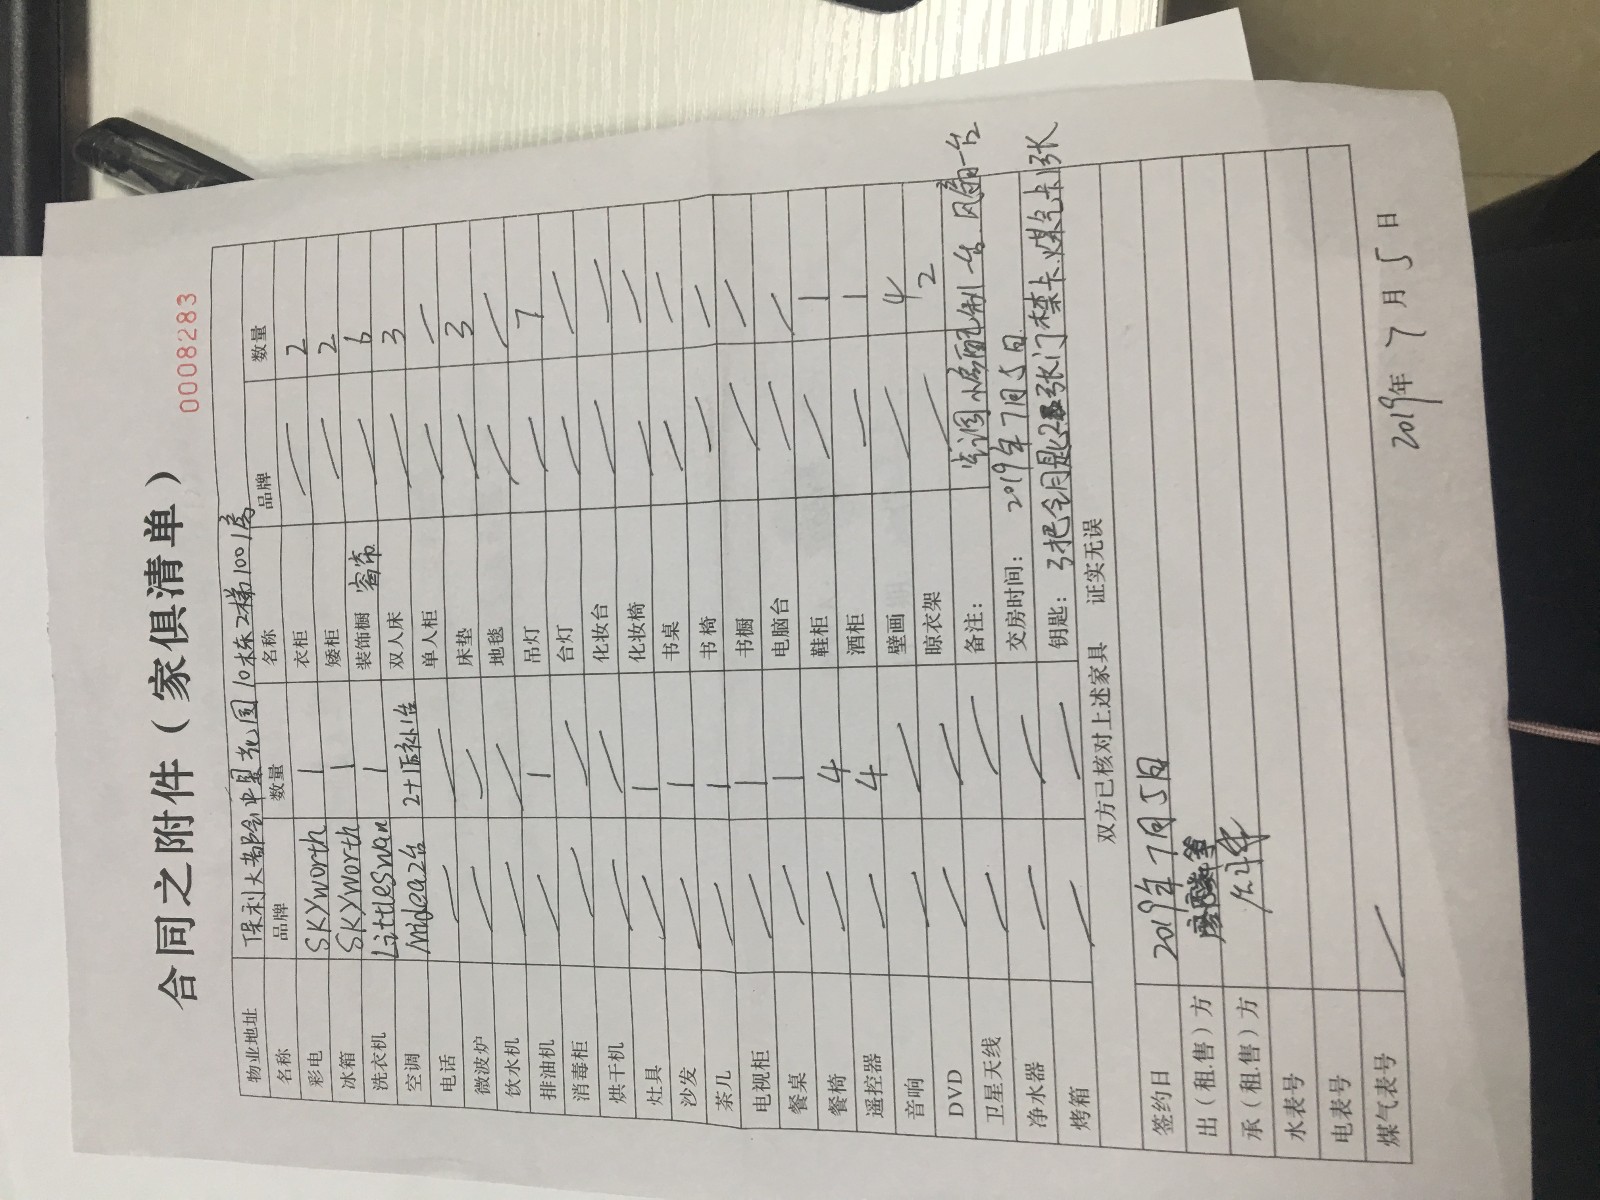 00008283
合同之附件（家俱清单）
物业地址 保利大都会中景花园10栋2梯1001房
名称 品牌 数量 名称 品牌 数量
彩电 SKYworth 1 衣柜 / 2
冰箱 SKYworth 1 矮柜 / 2
洗衣机 Littleswan 1 装饰橱 窗帘 / 6
空调 Midea2台 2+1后补1台 双人床 / 3
电话 / / 单人柜 / /
微波炉 / / 床垫 / 3
饮水机 / / 地毯 / /
排油机 / 1 吊灯 / 7
消毒柜 / / 台灯 / /
烘干机 / / 化妆台 / /
灶具 / 1 化妆椅 / /
沙发 / 1 书桌 / /
茶几 / 1 书椅 / /
电视柜 / 1 书橱 / /
餐桌 / 1 电脑台 / /
餐椅 / 4 鞋柜 / 1
遥控器 / 4 酒柜 / 1
音响 / / 壁画 / 4
DVD / / 晾衣架 / 2
卫星天线 / / 备注： 空调小房配制一台、风扇一台
净水器 / / 交房时间： 2019年7月5日
烤箱 / / 钥匙： 3把钥匙2张门禁卡.煤气卡1张
双方已核对上述家具 证实无误
签约日 2019年7月5日
出（租.售）方
承（租.售）方
水表号
电表号
煤气表号 /
2019年 7 月 5 日